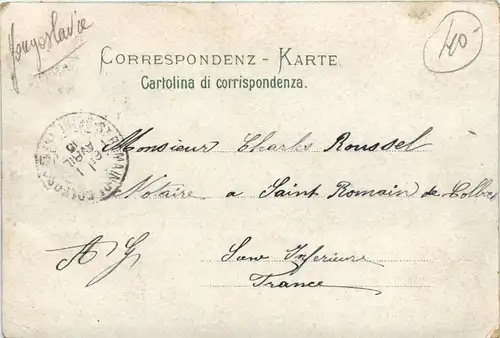 Jougoslavie
40
CORRESPONDENZ - KARTE.
Cartolina di corrispondenza.
Monsieur Charles Roussel
Notaire a Saint Romain de Colbos
A G
Seine Inferieure
France